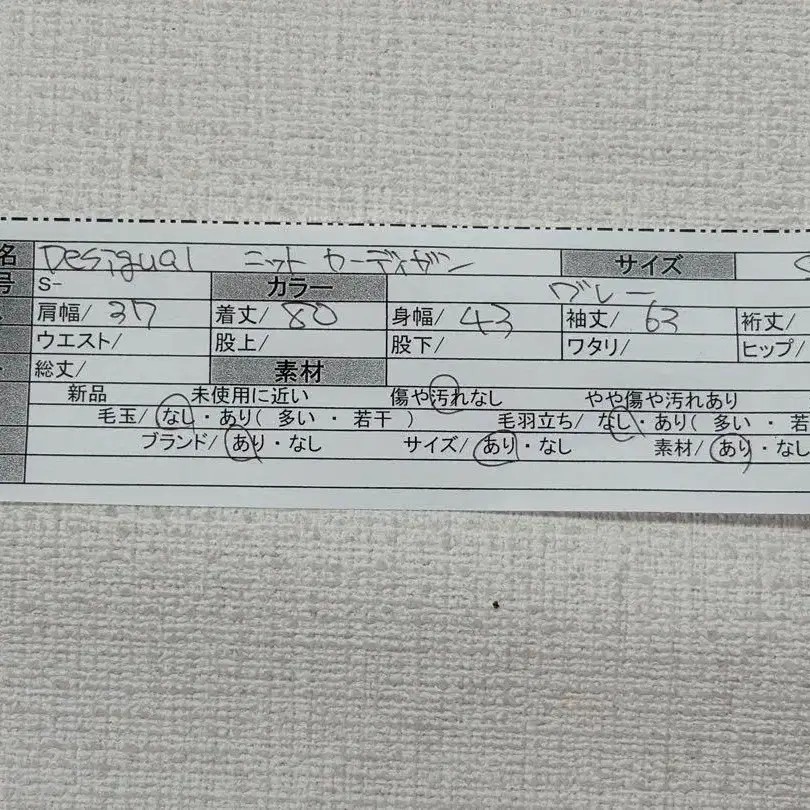 名 Desigual ニットカーディガン サイズ
号 S- カラー グレー
肩幅/ 37 着丈/ 80 身幅/ 43 袖丈/ 63 裄丈/
ウエスト/ 股上/ 股下/ ワタリ/ ヒップ/
総丈/ 素材
新品 未使用に近い 傷や汚れなし やや傷や汚れあり
毛玉/ なし・あり( 多い ・ 若干 ) 毛羽立ち/ なし・あり( 多い ・ 若
ブランド/ あり・なし サイズ/ あり・なし 素材/ あり・なし